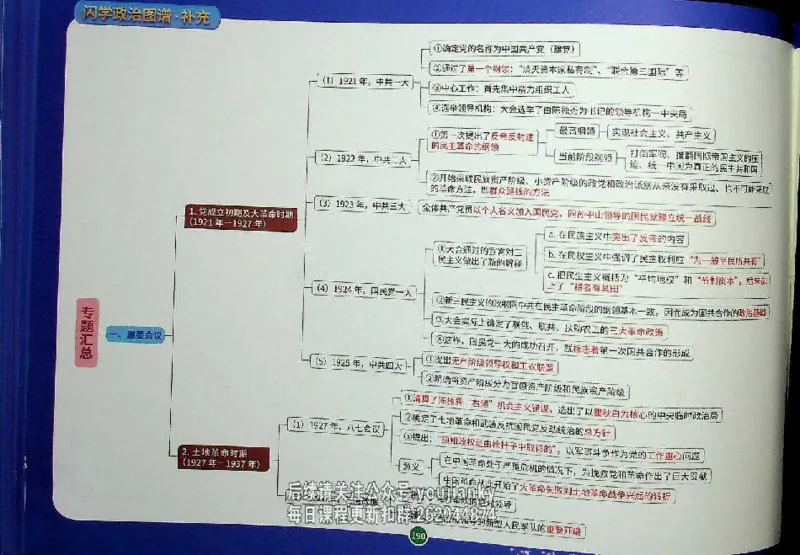 闪学政治图谱·补充
专题汇总
一、重要会议
1. 党成立初期及大革命时期
(1921 年—1927 年)
(1) 1921 年，中共一大
①确定党的名称为中国共产党（建党）
②通过了第一个纲领：“消灭资本家私有制”、“联合第三国际”等
③中心工作：首先集中精力组织工人
④选举领导机构：大会选举了由陈独秀为书记的领导机构—中央局
(2) 1922 年，中共二大
①第一次提出了反帝反封建
的民主革命的纲领
最高纲领
实现社会主义、共产主义
当前阶段纲领
打倒军阀、推翻国际帝国主义的压
迫、统一中国为真正的民主共和国
②开始采取民族资产阶级、小资产阶级的政党和政治派别从来没有采取过、也不可能采取
的革命方法，即群众路线的方法
(3) 1923 年，中共三大
全体共产党员以个人名义加入国民党，同孙中山领导的国民党建立统一战线
(4) 1924 年，国民党一大
①大会通过的宣言对三
民主义做出了新的解释
a. 在民族主义中突出了反帝的内容
b. 在民权主义中强调了民主权利应“为一般平民所共有”
c. 把民生主义概括为“平均地权”和“节制资本”，后来
上了“耕者有其田”
②新三民主义的政纲同中共在民主革命阶段的纲领基本一致，因而成为国共合作的政治基础
③大会实际上确定了联俄、联共、扶助农工的三大革命政策
④这样，国民党一大的成功召开，就标志着第一次国共合作的形成
(5) 1925 年，中共四大
①提出无产阶级领导权和工农联盟
②明确将资产阶级分为官僚资产阶级和民族资产阶级
2. 土地革命时期
(1927 年—1937 年)
(1) 1927 年，八七会议
①清算了陈独秀“右倾”机会主义错误，选出了以瞿秋白为核心的中央临时政治局
②确定了土地革命和武装反抗国民党反动统治的总方针
③提出：“须知政权是由枪杆子中取得的”，以军事斗争作为党的工作重心问题
意义
在中国革命处于严重危机的情况下，为挽救党和革命作出了巨大贡献
中国革命从此开始了大革命失败到土地革命战争兴起的转折
新型人民军队的重要开端
后续请关注公众号youjianky
每日课程更新扣群262044874
190